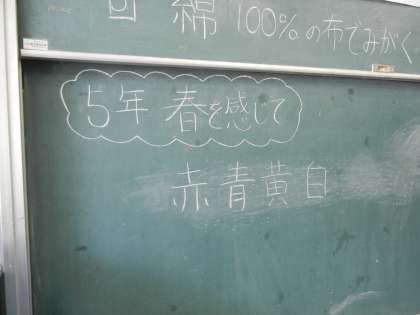 回 綿100%の布でみがく
5年 春を感じて
赤青黄白